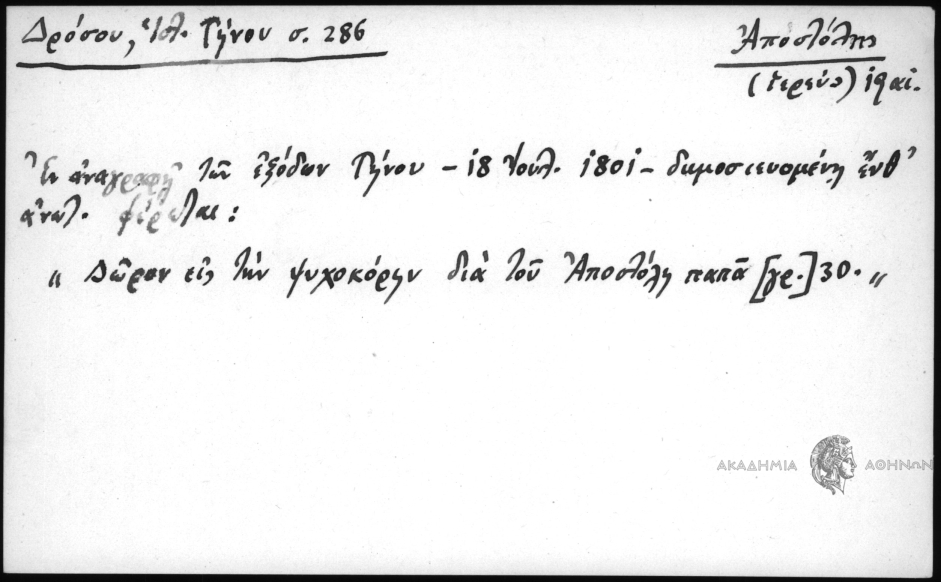 Δρόσου, Ἱστ. Τήνου σ. 286
Ἀποστόλης
(ἱερεύς) ιθ αἰ.
Ἐν ἀναγραφῇ τῶν ἐξόδων Τήνου – 18 Ἰουλ. 1801 – δημοσιευομένῃ ἔνθ'
ἀνωτ. φέρεται:
„ Δῶρον εἰς τὴν ψυχοκόρην διὰ τοῦ Ἀποστόλη παπᾶ [γρ.] 30. „
ΑΚΑΔΗΜΙΑ ΑΘΗΝΩΝ